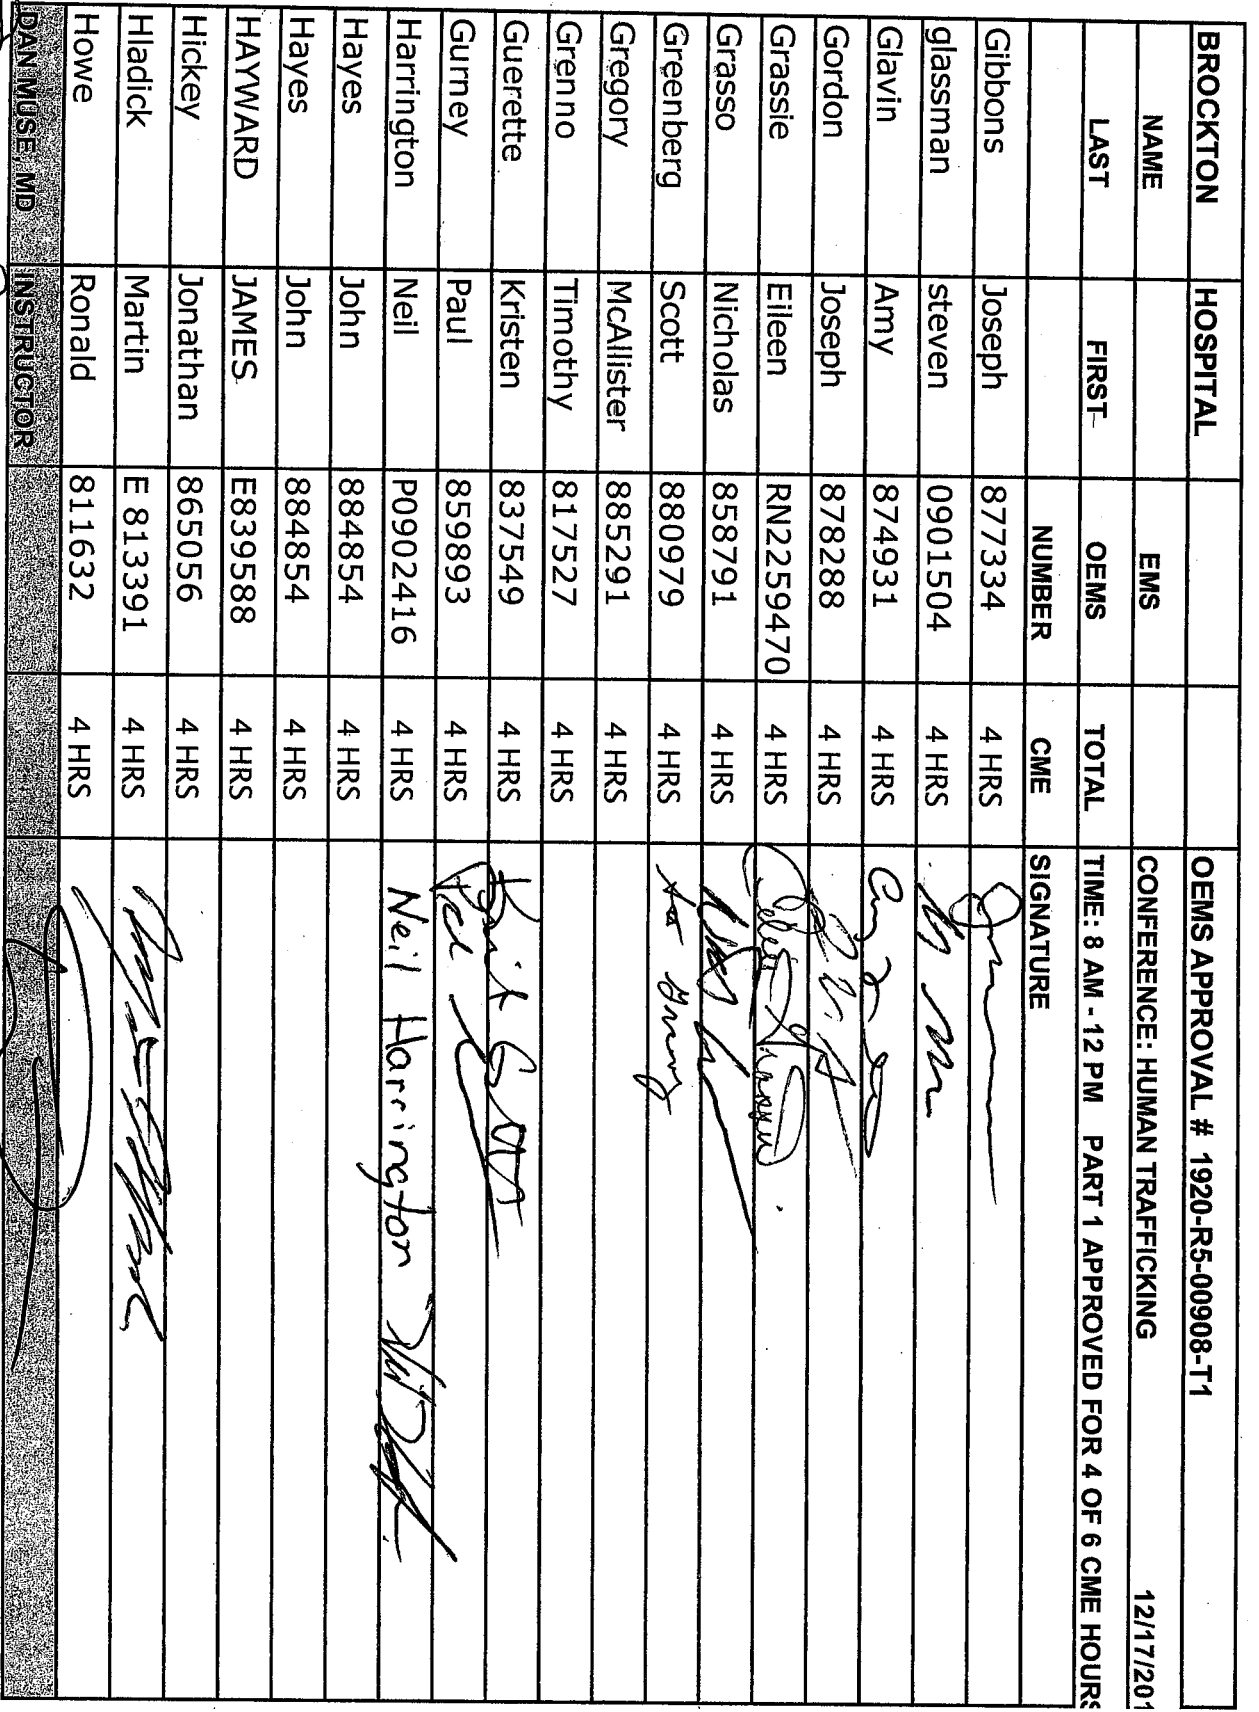 BROCKTON HOSPITAL OEMS APPROVAL # 1920-R5-00908-T1
NAME EMS CONFERENCE: HUMAN TRAFFICKING 12/17/201
LAST FIRST OEMS TOTAL TIME: 8 AM - 12 PM PART 1 APPROVED FOR 4 OF 6 CME HOURS
NUMBER CME SIGNATURE
Gibbons Joseph 877334 4 HRS
glassman steven 0901504 4 HRS
Glavin Amy 874931 4 HRS
Gordon Joseph 878288 4 HRS
Grassie Eileen RN2259470 4 HRS
Grasso Nicholas 858791 4 HRS
Greenberg Scott 880979 4 HRS
Gregory McAllister 885291 4 HRS
Grenno Timothy 817527 4 HRS
Guerette Kristen 837549 4 HRS
Gurney Paul 859893 4 HRS
Harrington Neil P0902416 4 HRS Neil Harrington
Hayes John 884854 4 HRS
Hayes John 884854 4 HRS
HAYWARD JAMES E839588 4 HRS
Hickey Jonathan 865056 4 HRS
Hladick Martin E 813391 4 HRS
Howe Ronald 811632 4 HRS
DAN MUSE, MD INSTRUCTOR